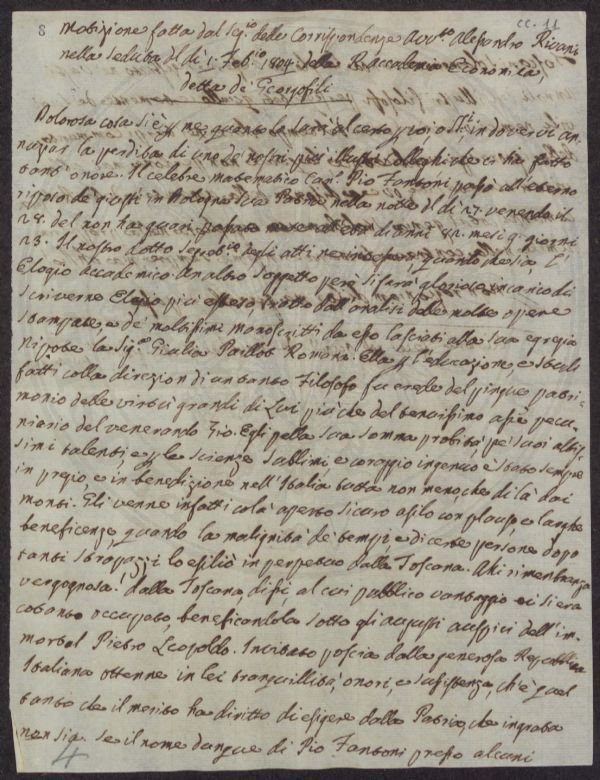 8
cc. 11
Mozione fatta dal Seg.rio delle Corrispondenze Avv.to Alessandro Rivani
nella seduta del dì 1. Feb.io 1804 della R. Accademia Economica,
detta de' Georgofili
Dolorosa cosa si è per me, quanto lo sarà al certo per voi o Ill.i, in dovervi an-
nunziar la perdita di uno de' nostri più illustri Colleghi che ci ha fatto
tanto onore. Il celebre matematico Can.o Pio Fantoni passò all'eterno
riposo de' giusti in Bologna sua Patria nella notte del dì 27. venendo il
28. del non ha guari passato mese in età di anni 82. mesi giorni
23. Il nostro dotto Seg.rio degli atti quando che sia, l'
Elogio accademico. Un altro soggetto però si farà glorioso incarico di
scriverne Elogio più esteso, tratto dall'analisi delle molte opere
stampate, e de' moltissimi manoscritti da esso lasciati alla sua egregia
Nipote la Sig.ra Giulia Paillot Romana. Ella per l'educazione, e studi
fatti colla direzion di un tanto Filosofo fu erede del pingue patri-
monio delle virtù grandi di Lui più che del tenuissimo asse pecu-
niario del venerando Zio. Egli per la sua somma probità, pe' suoi altis-
simi talenti, e per le scienze sublimi e coraggio ingenuo è stato sempre
in pregio, e in benedizione nell'Italia tutta non meno, che di là dai
monti. Gli venne infatti colà aperto sicuro asilo con plauso, e larghe
beneficenze quando la malignità de' tempi e di certe persone, dopo
tanti strapazzi lo esiliò in perpetuo dalla Toscana. Ahi rimembranza
vergognosa! dalla Toscana, dissi, al cui pubblico vantaggio ei si era
cotanto occupato, beneficandola sotto gli augusti auspici dell'im-
mortal Pietro Leopoldo. Invitato poscia dalla generosa Repubblica
Italiana ottenne in lei tranquillità, onori, e sussistenza, ch'è quel
tanto che il merito ha diritto di esigere dalla Patria, che ingrata
non sia. Se il nome dunque di Pio Fantoni presso alcuni
4